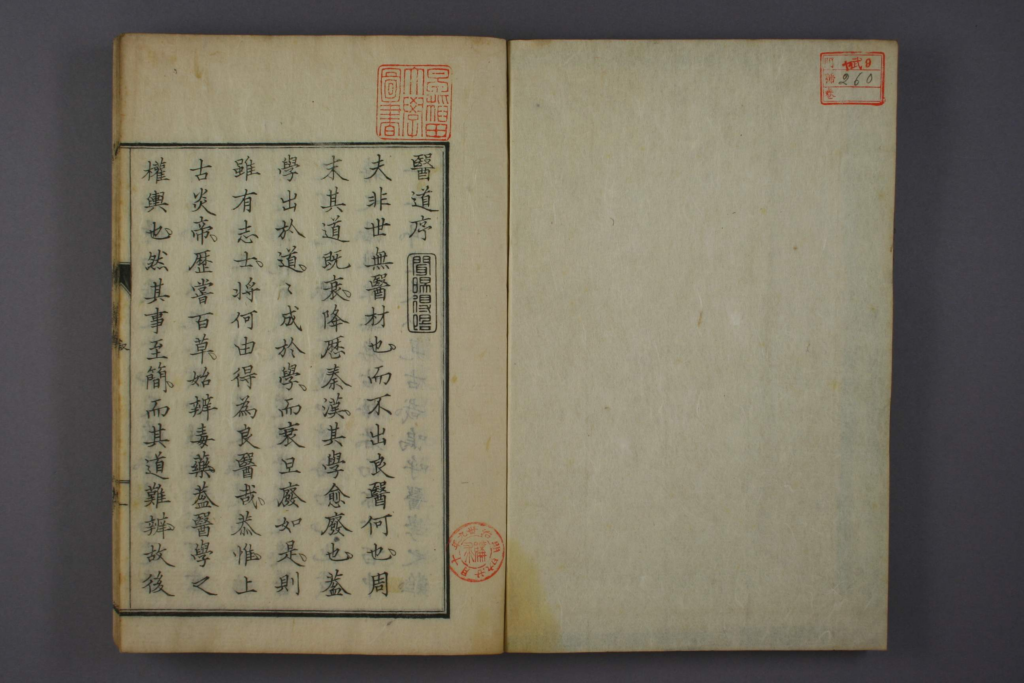 門 貳 9
號 260
卷
早稲田
大學
圖書
醫道序
夫非世無醫材也而不出良醫何也周
末其道既衰降歷秦漢其學愈廢也蓋
學出於道〻成於學而衰且廢如是則
雖有志士將何由得為良醫哉恭惟上
古炎帝歷嘗百草始辨毒藥蓋醫學之
權輿也然其事至簡而其道難辨故後